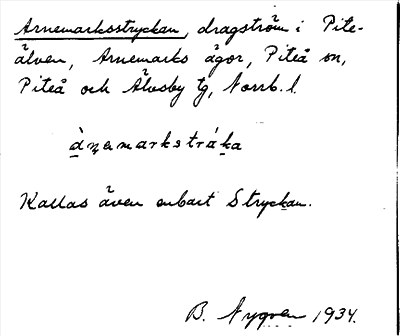 Arnemarksstryckan, dragström i Pite-
älven, Arnemarks ägor, Piteå sn,
Piteå och Älvsby tg, Norrb. l.
Kallas även enbart Stryckan.
B. Nygren 1934.